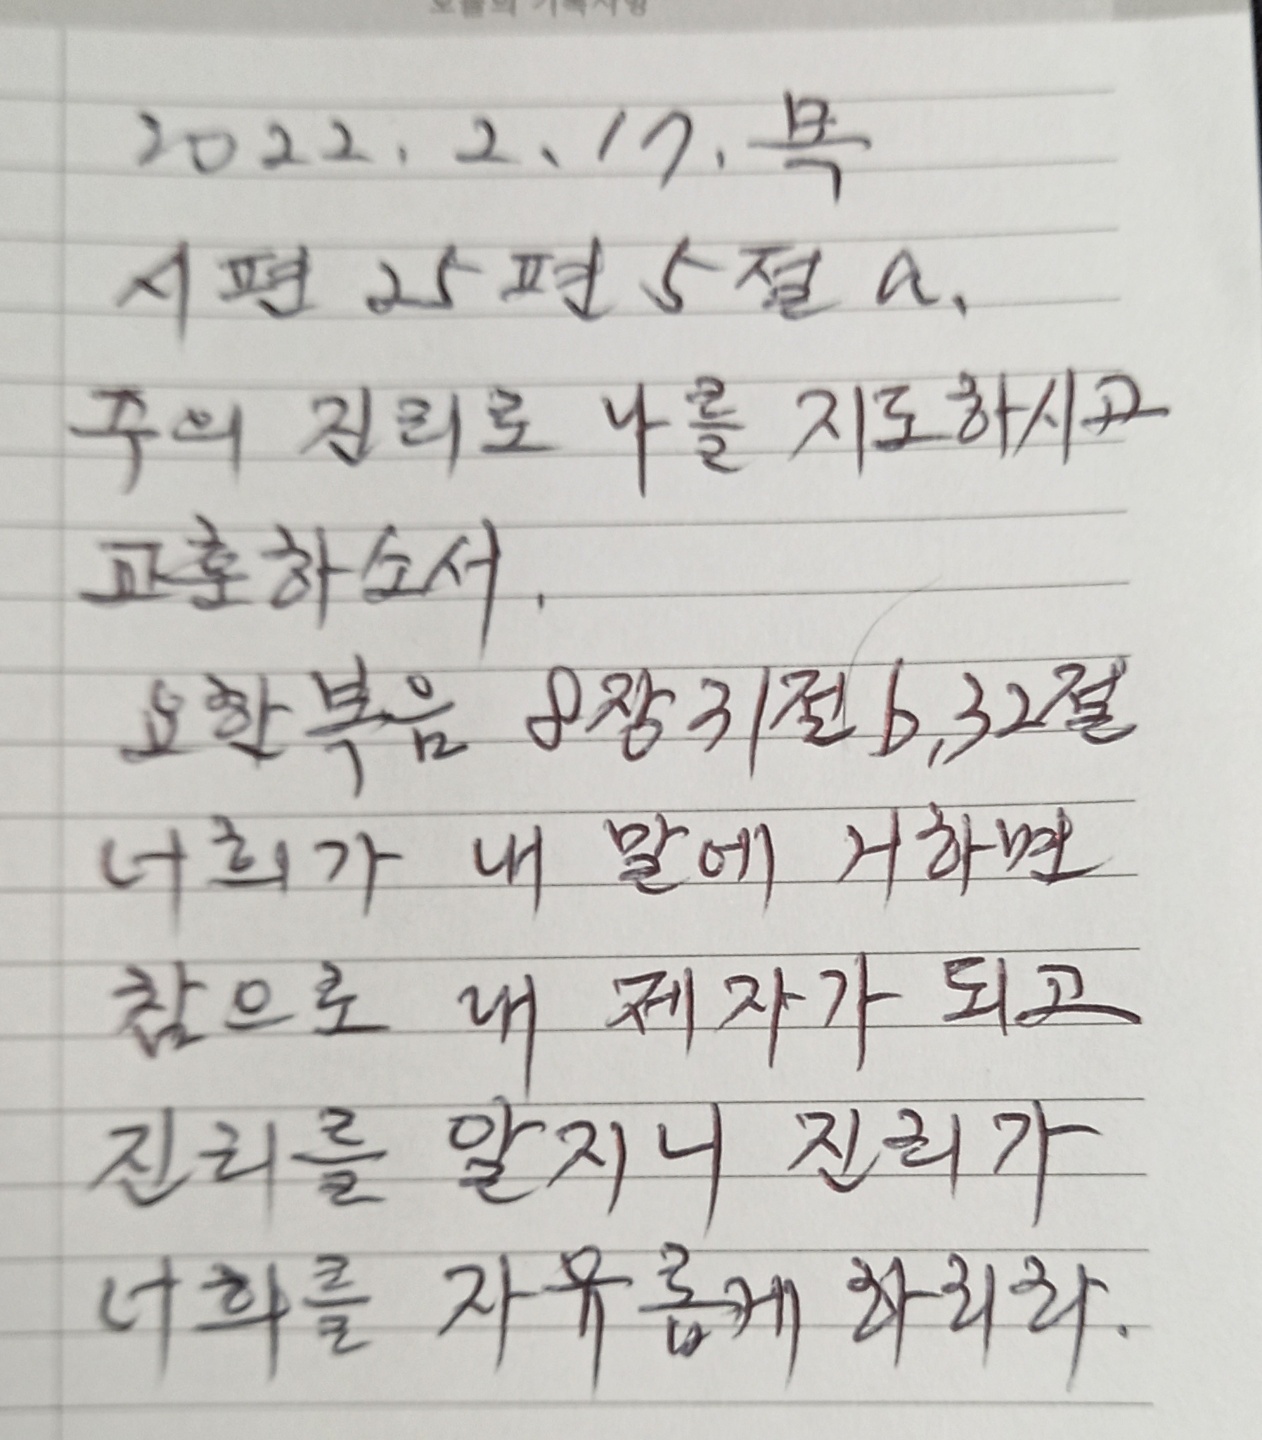 2022. 2. 17. 목
시편 25편 5절 a.
주의 진리로 나를 지도하시고
교훈하소서.
요한복음 8장 31절 b, 32절
너희가 내 말에 거하면
참으로 내 제자가 되고
진리를 알지니 진리가
너희를 자유롭게 하리라.